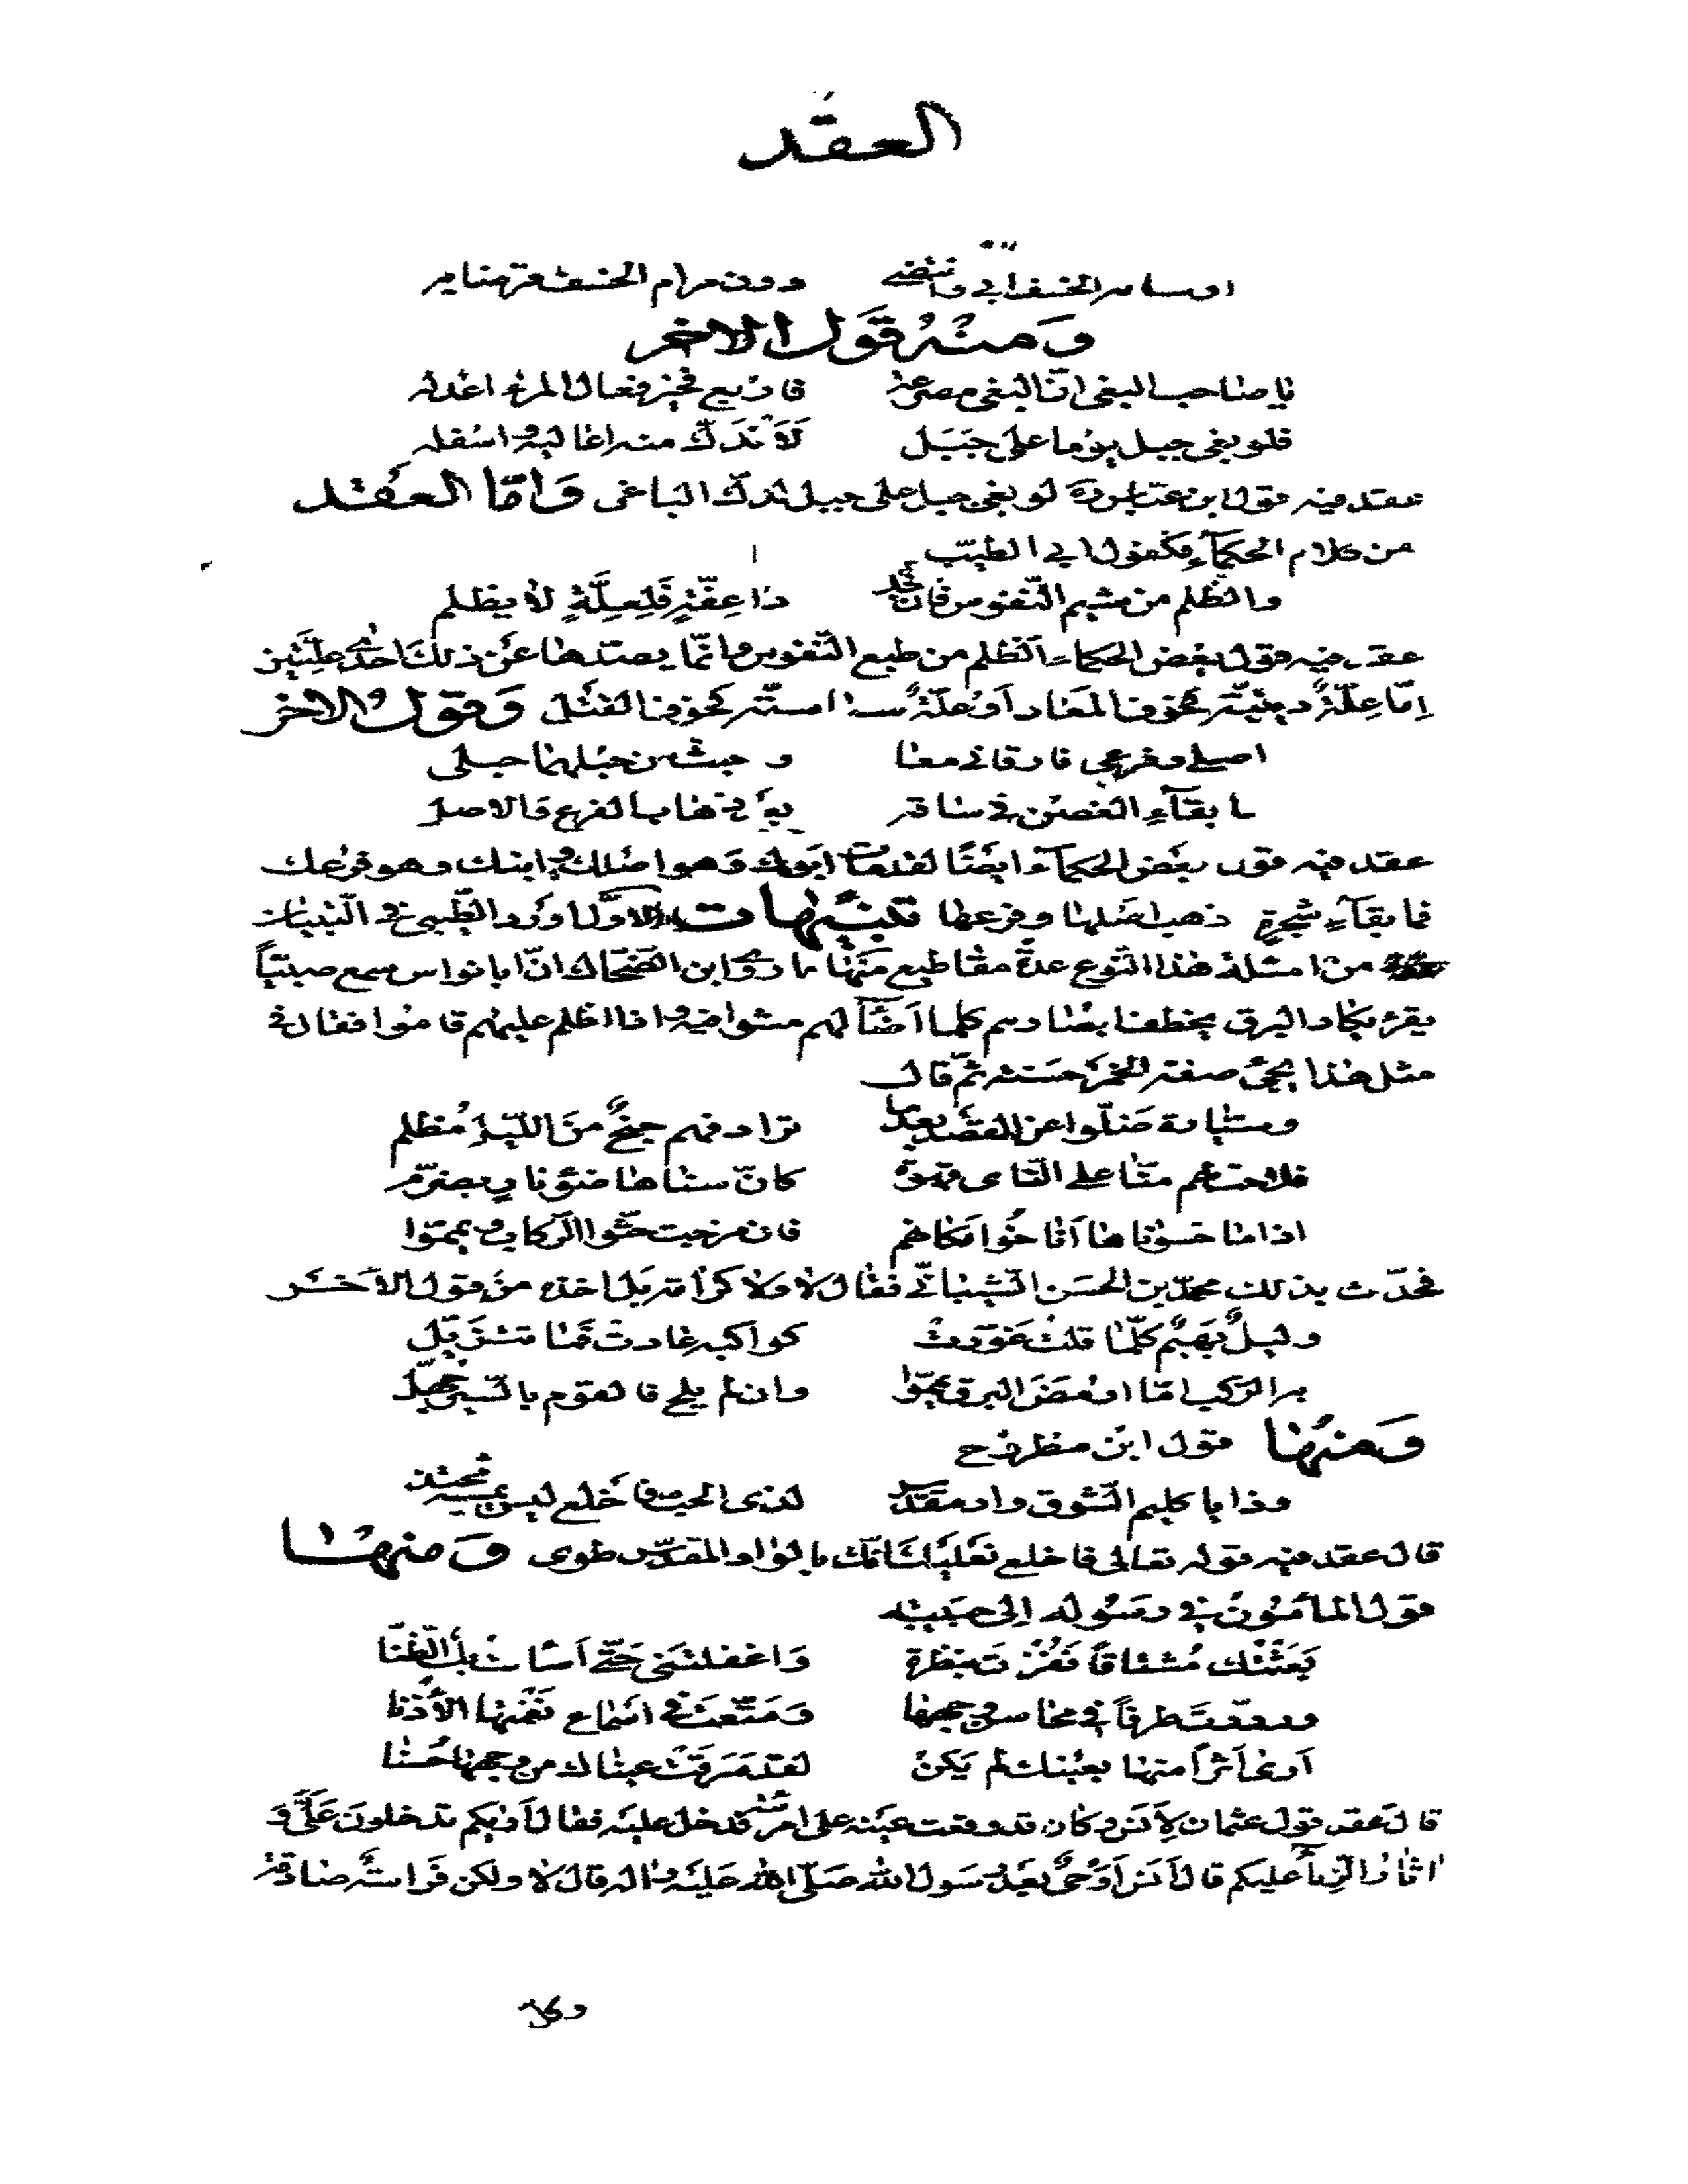 العقد
دون مرام الخسف
وَمنْهُ قَول الاخر
يا صاحب البغى انّ البغى مصرعة فاربع فخير فعال المرء اعدله
فلو بغى جبل يوما على جَبَل لَانْدَكَّ منه اعاليه واسفله
عقد فيه قول ابن عبّاس رض لو بغى جبل على جبل لدكّ الباغى وَامّا العقد
من كلام الحكمآءِ فكقول ابي الطيّب
والظلم من شيم النّفوس فان تجد ذا عِفّةٍ فَلِعِلَّةٍ لا يظلم
عقد فيه قول بعض الحكماء الظلم من طبع النّفوس وانّما يصدّها عن ذلك احدى علّتين
إمّا عِلّةٌ دينيّة كخوف المعاد اوْ علّةٌ سياسيّة كخوف القتل وَقولُ الاخر
اصلى وفرعى فارقانى معا وجبّت من حبلهما حبلى
ما بقآءِ الغصن في ساقه بعد ذهاب الفرع وَالاصل
عقد فيه قول بعض الحكمآء ايضًا لقد مات ابوك وَهو اصلك وابنك وهو فرعك
فما بقآء شجرةٍ ذهب اصلها وفرعها تنبيهات الاوّل اورد الطّيبى فى التّبيان
من امثلة هذا النّوع عدة مقاطيع مَنها ما روى ابن الضّحّاك انّ ابا نواس سمع صبيّاً
يقرء يكاد البرق يخطف ابصارهم كلّما اضآءَ لهم مشوا فيه واذا اظلم عليهم قاموا فقال في
مثل هذا يجئ صفة الخمر حَسَنة ثمّ قال
وسيّارة ضَلّوا عن القصد بعدما ترادفهم جنحٌ منَ اللّيل مُظلم
فلاحت لهم منّا على النّاى قهوة كانّ سناها ضوْء نار تضرّم
اذا ما حسوناها أناخوا مكانهم فان مزجت حثّوا الرّكاب ويمّموا
فحدّث بذلك محمّد بن الحسَن الشّيبانيّ فقال لا ولا كرامة بَل اخذه منْ قول الآخَر
وليلٌ بَهيمٌ كلّما قلتُ غوّرتْ كواكبه عادتْ فما تتزيّل
به الرّكب امّا اومَضَ البرق يمّموا وان لم يلح فالقوم بالسّير جهّل
وَمنْهَا قول ابن مطروح
وذا يا كليم الشّوق واد مقدّس لذى الحبّ فاخلع ليس يمشيه محتذ
قال عقد فيه قوله تعالى فاخلع نعليك انّك بالواد المقدّس طوى وَمنهَا
قول المأمون في رسوله الى حبيبه
بَعَثْتك مُشتاقاً فَفُزتَ بنظرة وَاغفلتنى حتّى اسأت بك الظنّا
وردّدتَ طرفاً في محاسن وجهها وَمتّعت في اسماع نغمتها الأُذنا
أرى اثراً منها بعينك لم يكنْ لقد سرقت عيناك من وجهها حُسنا
قال عقد قول عثمان لأنس وكان قد وقعت عينه على امرأة فدخل عليه فقال أرايكم تدخلون عَلَيَّ وَ
اثار الزّنا عليكم قال أنس أوَحىٌ بعد رسول الله صَلّى الله عليْه وآله قال لا ولكن فراسة صادقة